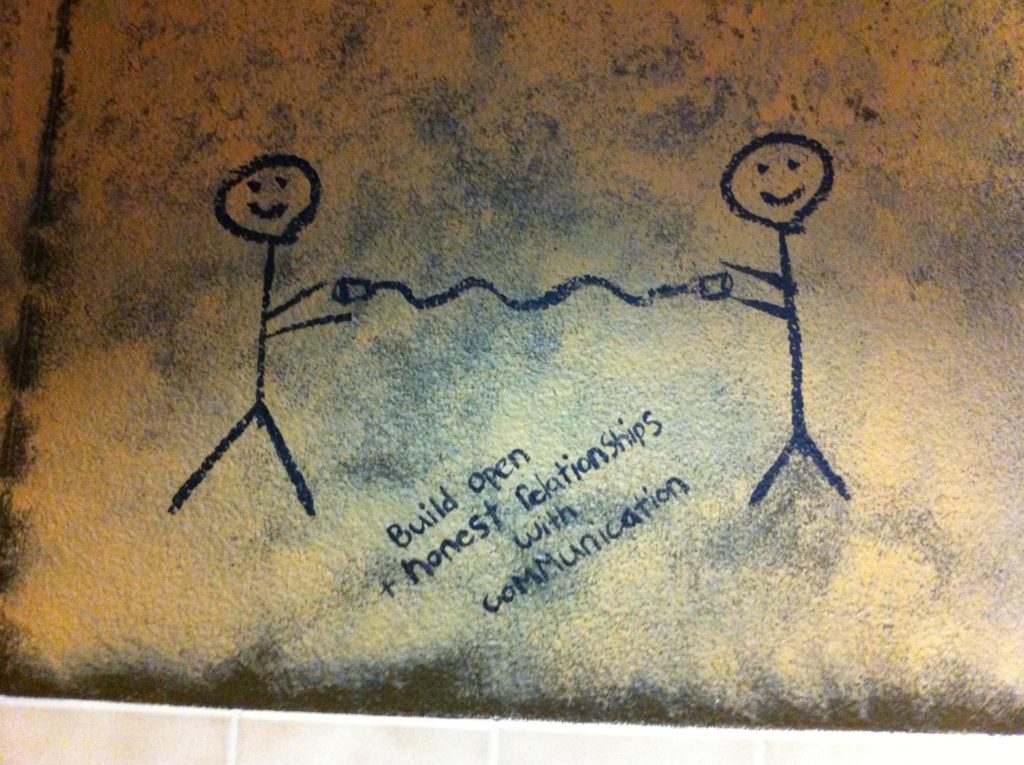 Build open
+ honest relationships
with
communication